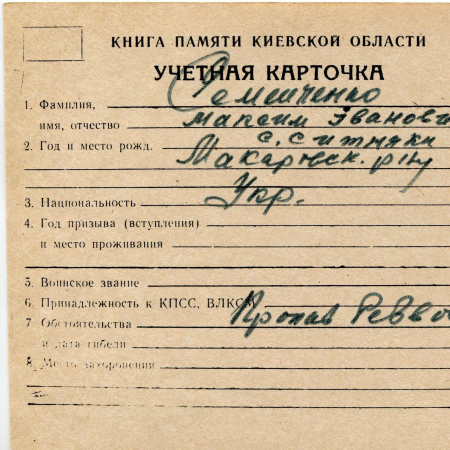 КНИГА ПАМЯТИ КИЕВСКОЙ ОБЛАСТИ
УЧЕТНАЯ КАРТОЧКА
1. Фамилия, Семенченко
имя, отчество Максим Иванови
2. Год и место рожд. с. Ситняки
Макаровск. р-ну
3. Национальность Укр.
4. Год призыва (вступления)
и место проживания
5. Воинское звание
6. Принадлежность к КПСС, ВЛКСМ
7. Обстоятельства Пропав
и дата гибели
8. Место захоронения